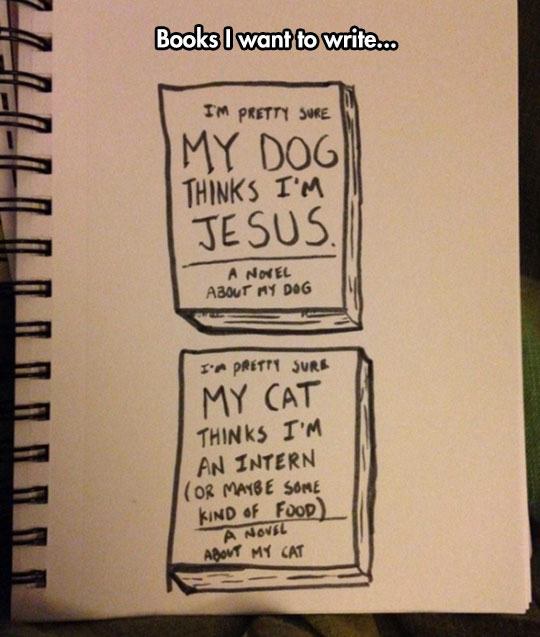 Books I want to write...
I'M PRETTY SURE
MY DOG
THINKS I'M
JESUS.
A NOVEL
ABOUT MY DOG
I'M PRETTY SURE
MY CAT
THINKS I'M
AN INTERN
(OR MAYBE SOME
KIND OF FOOD)
A NOVEL
ABOUT MY CAT